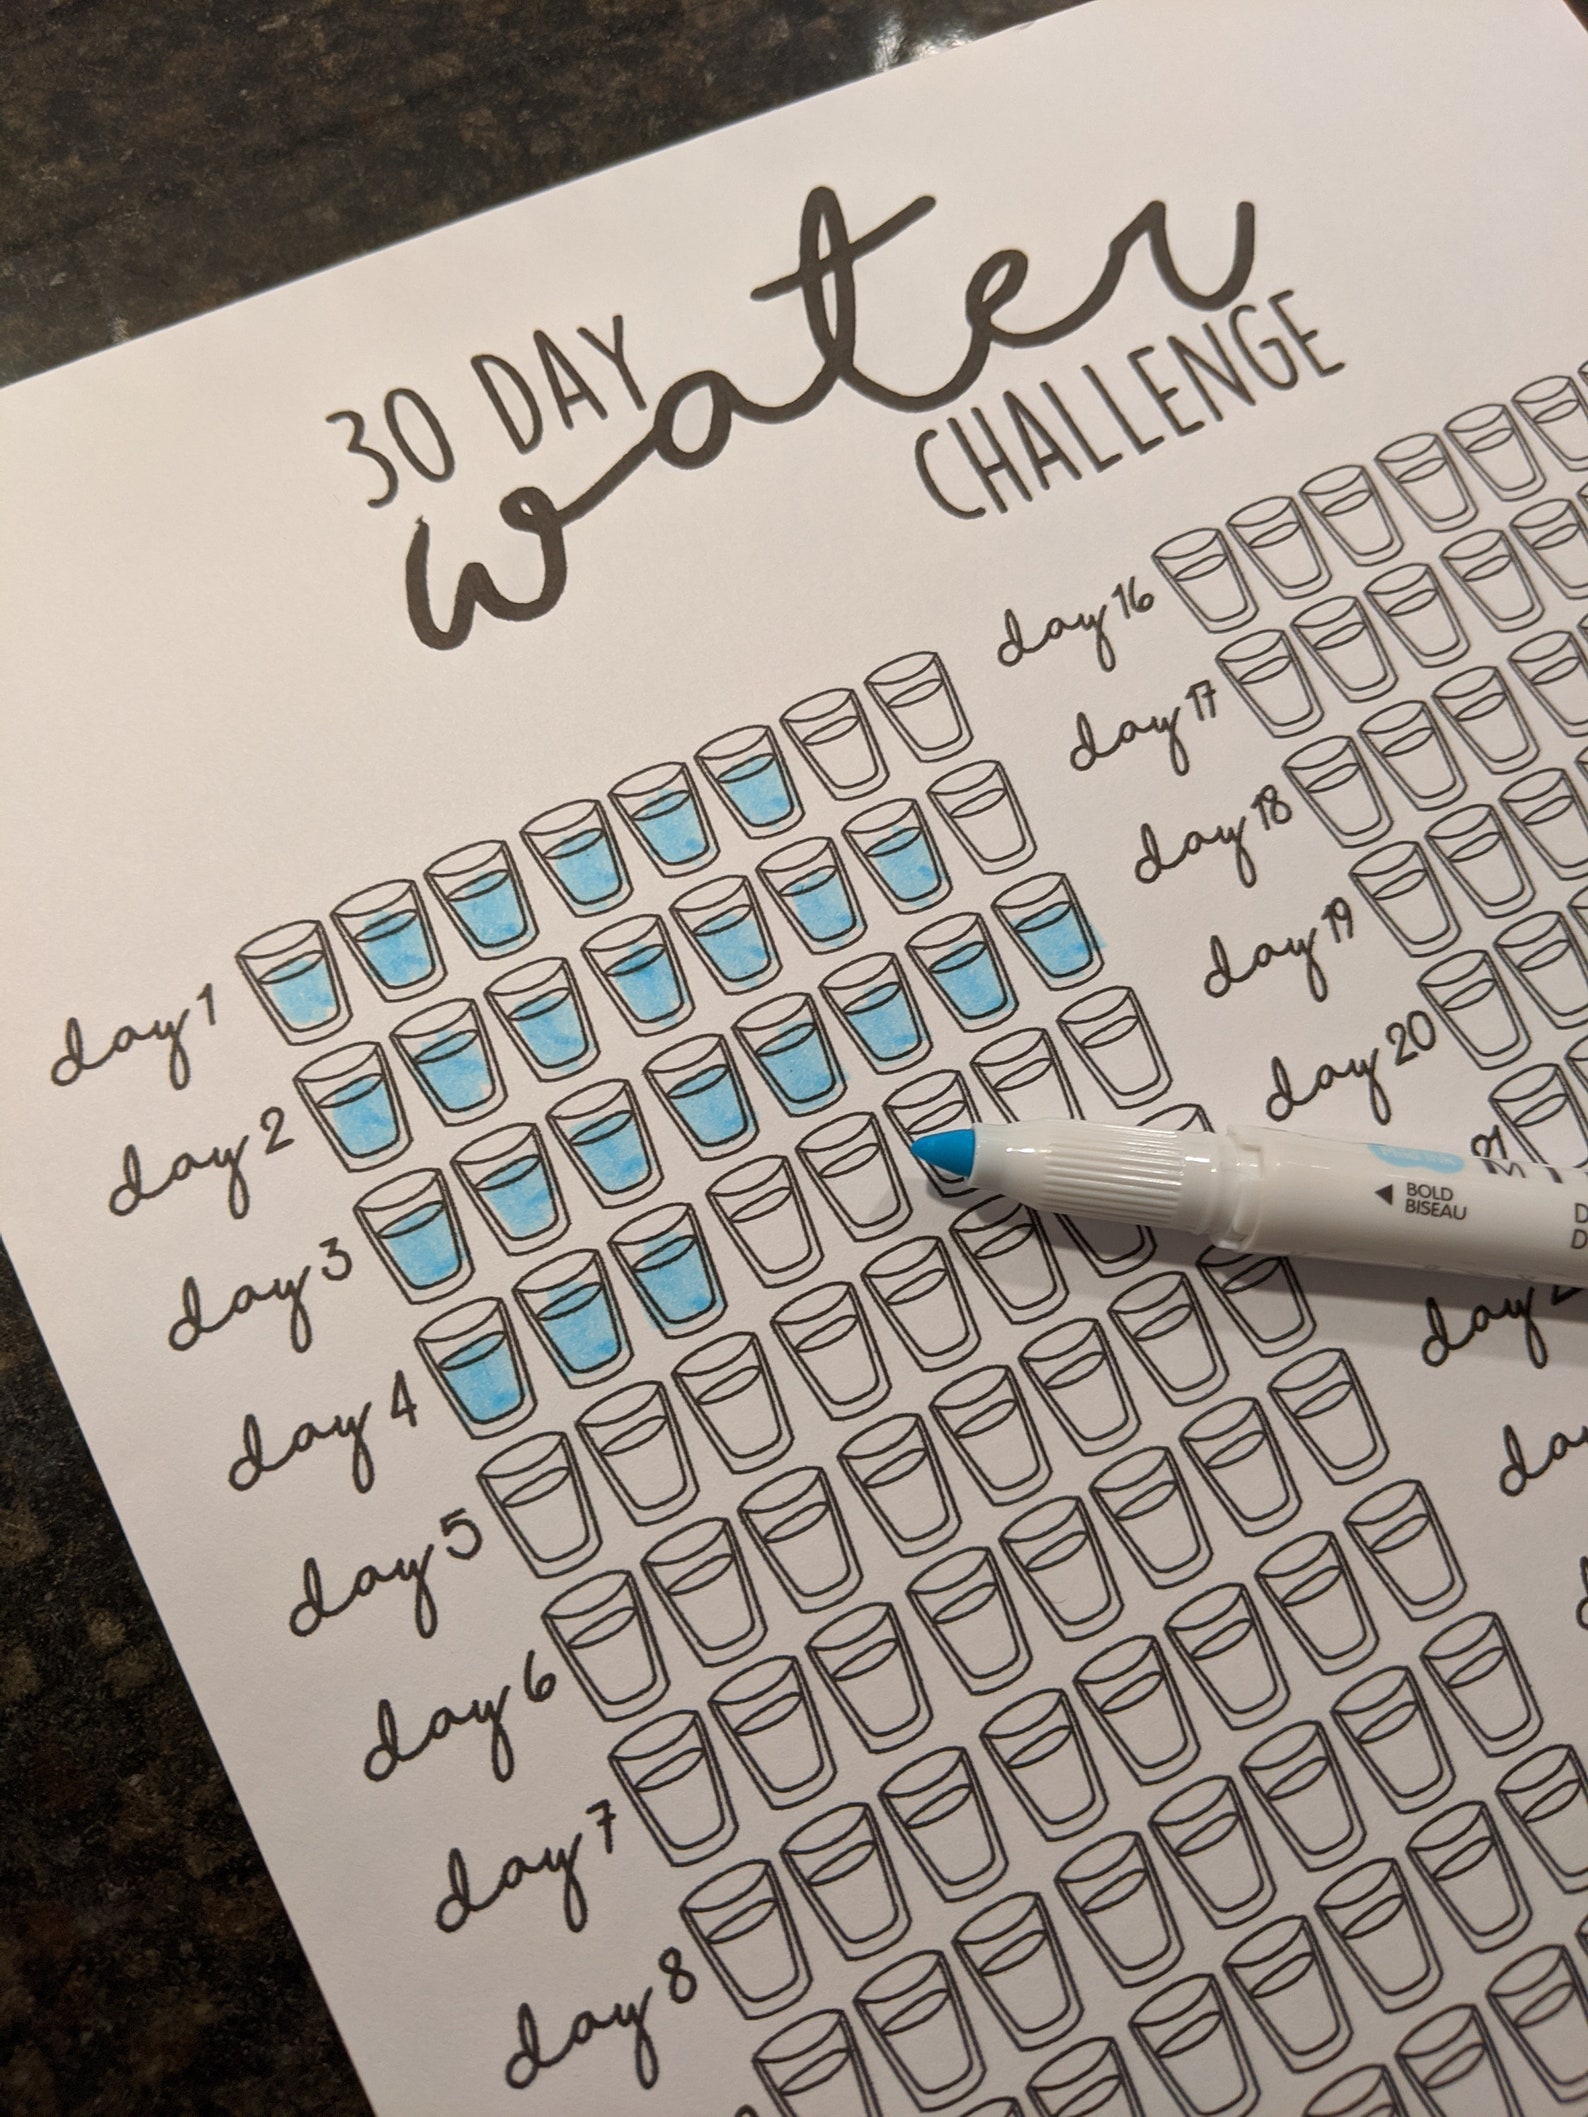 30 DAY
water
CHALLENGE
day 1
day 2
day 3
day 4
day 5
day 6
day 7
day 8
day 16
day 17
day 18
day 19
day 20
21
day
day
BOLD
BISEAU